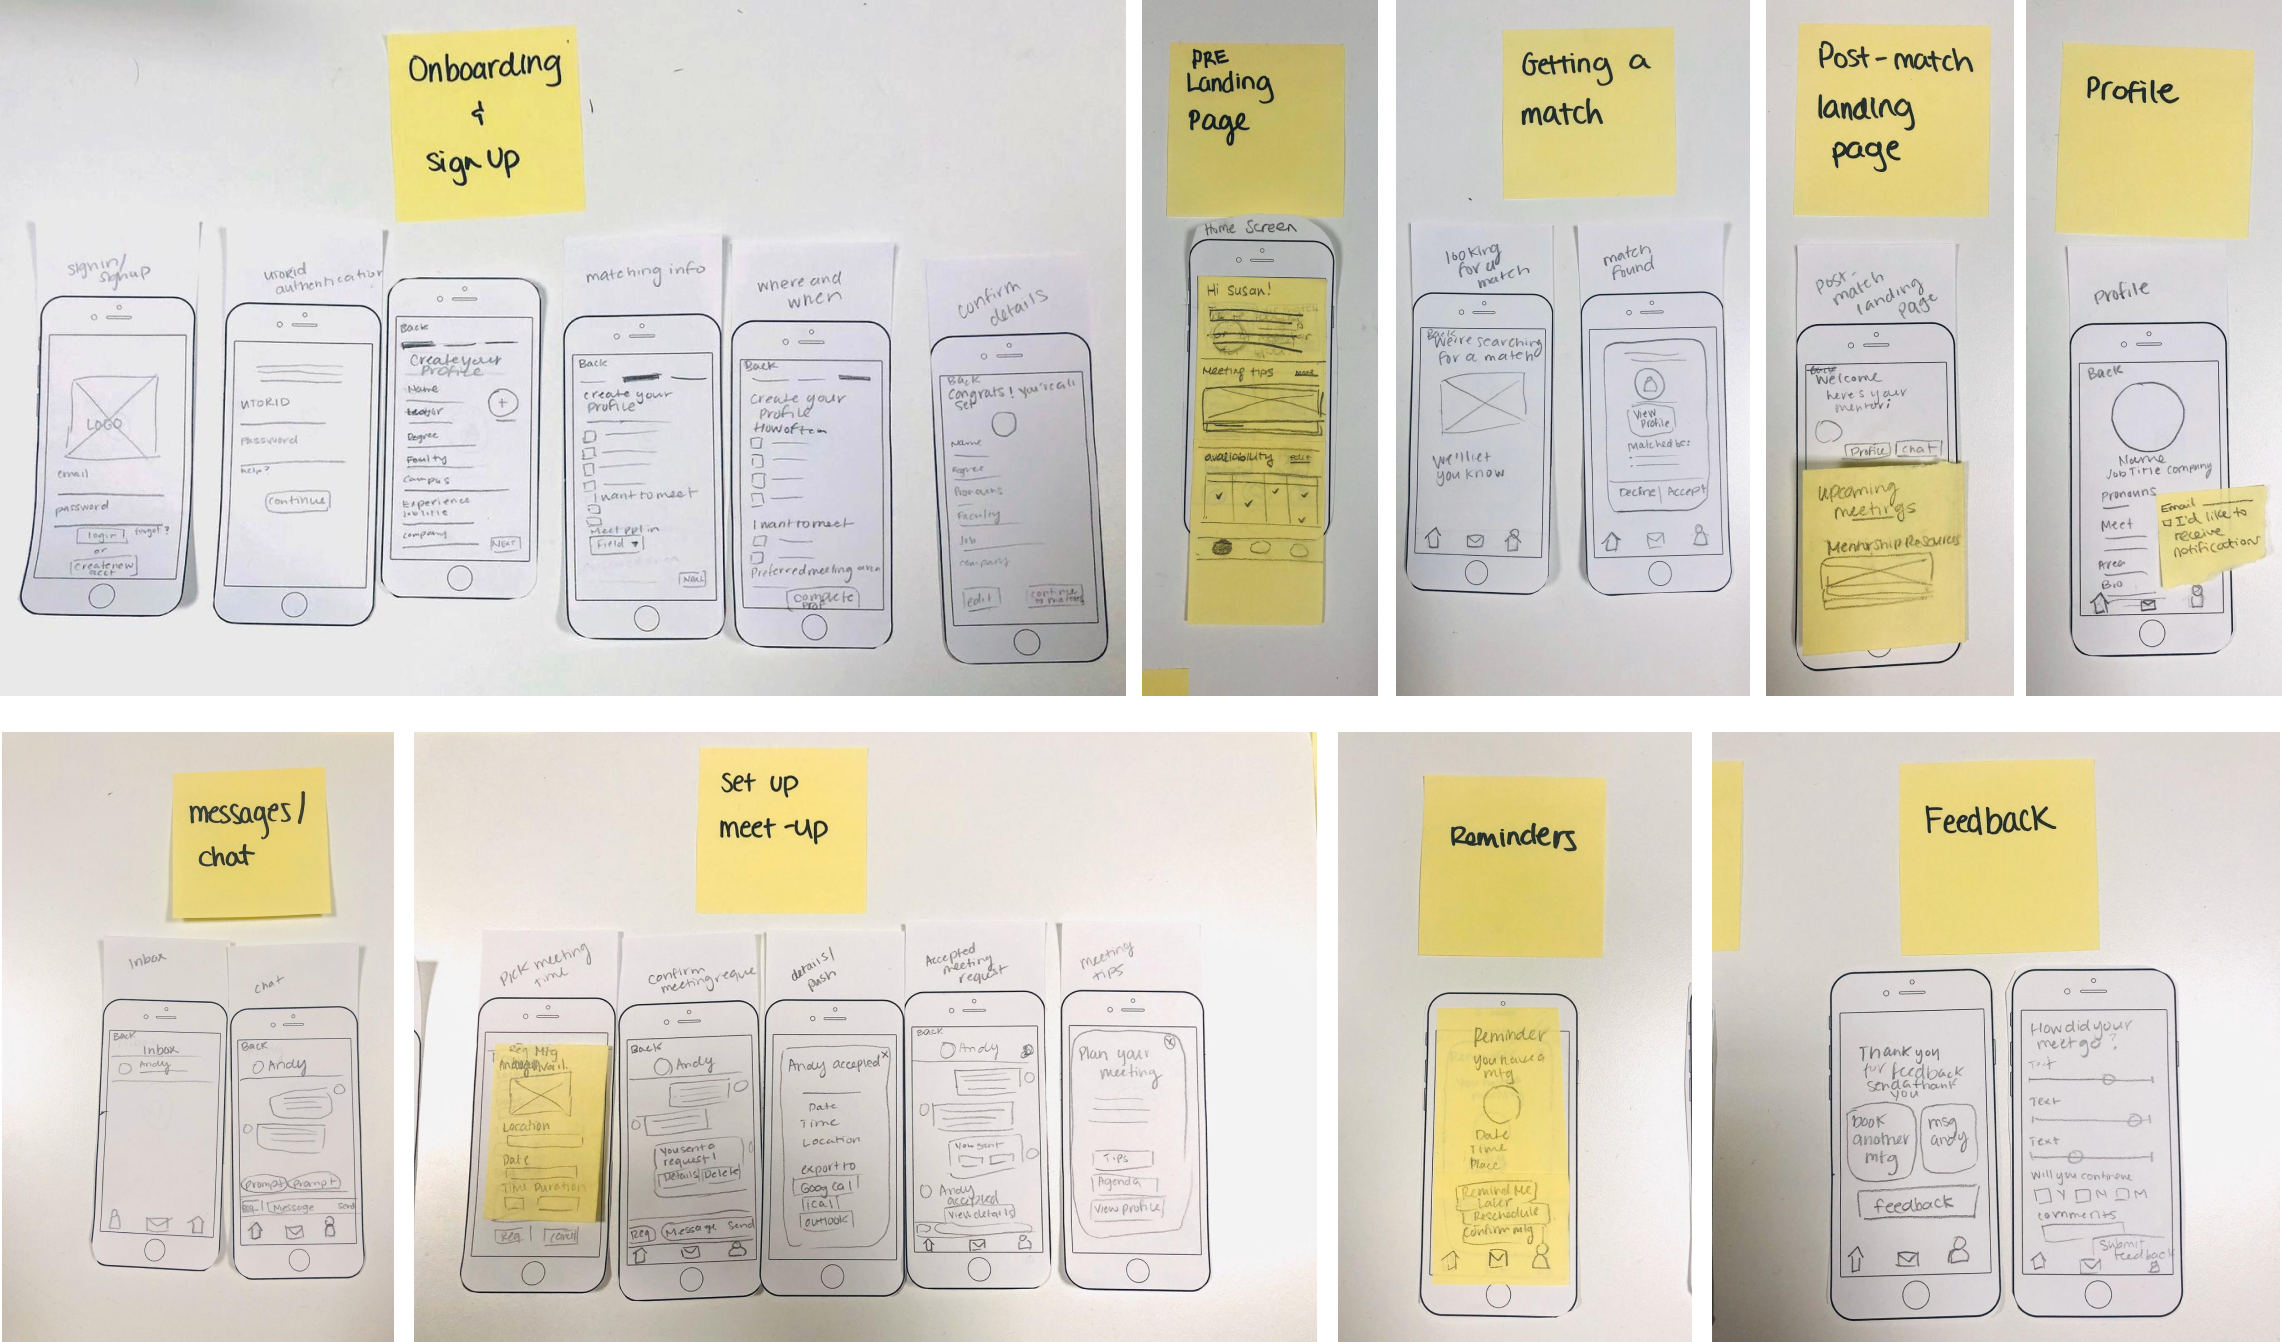 Onboarding
&
sign Up
signin/
signup
LOGO
email
password
login
forgot?
or
create new
acct
UTORID
authentication
UTORID
password
help?
continue
Back
Create your
Profile
Name
Degree
Faculty
Campus
Experience
Job title
company
NEXT
matching info
Back
create your
Profile
I want to meet
Meet ppl in
Field
Next
where and
when
Back
Create your
Profile
How often
I want to meet
Preferred meeting area
complete
prof
confirm
details
Back
Congrats! you're all
set
Name
Degree
Pronouns
Faculty
Job
company
edit
continue
to matches
PRE
Landing
Page
Home Screen
Hi Susan!
Meeting tips
more
availability
edit
Getting a
match
looking
for a
match
Back
We're searching
for a match
We'll let
you know
match
found
View
Profile
Matched bc:
Decline
Accept
Post-match
landing
page
post-
match
landing
page
Welcome
here's your
mentor:
Profile
chat
upcoming
meetings
Mentorship Resources
Profile
Profile
Back
Name
Job Title Company
Pronouns
Meet
Area
Bio
Email
I'd like to
receive
notifications
messages/
chat
Inbox
Back
Inbox
Andy
chat
Back
Andy
prompt
prompt
Req
Message
Send
Set up
meet-up
Pick meeting
time
Req Mtg
Location
Date
Time Duration
Req
Cancel
confirm
meeting reque
Back
Andy
You sent a
request!
Details
Delete
Req
Message
Send
details/
push
Andy accepted
x
Date
Time
Location
export to
Goog cal
ical
outlook
Accepted
meeting
request
Back
Andy
You sent
Andy
accepted
View details
meeting
tips
Plan your
meeting
x
Tips
Agenda
View profile
Reminders
Reminder
you have a
mtg
Date
Time
Place
Remind Me
Later
Reschedule
Confirm mtg
Feedback
Thank you
for feedback
send a thank
you
book
another
mtg
msg
andy
feedback
How did your
meet go?
Text
Text
Text
Will you continue
Y
N
M
comments
Submit
feedback